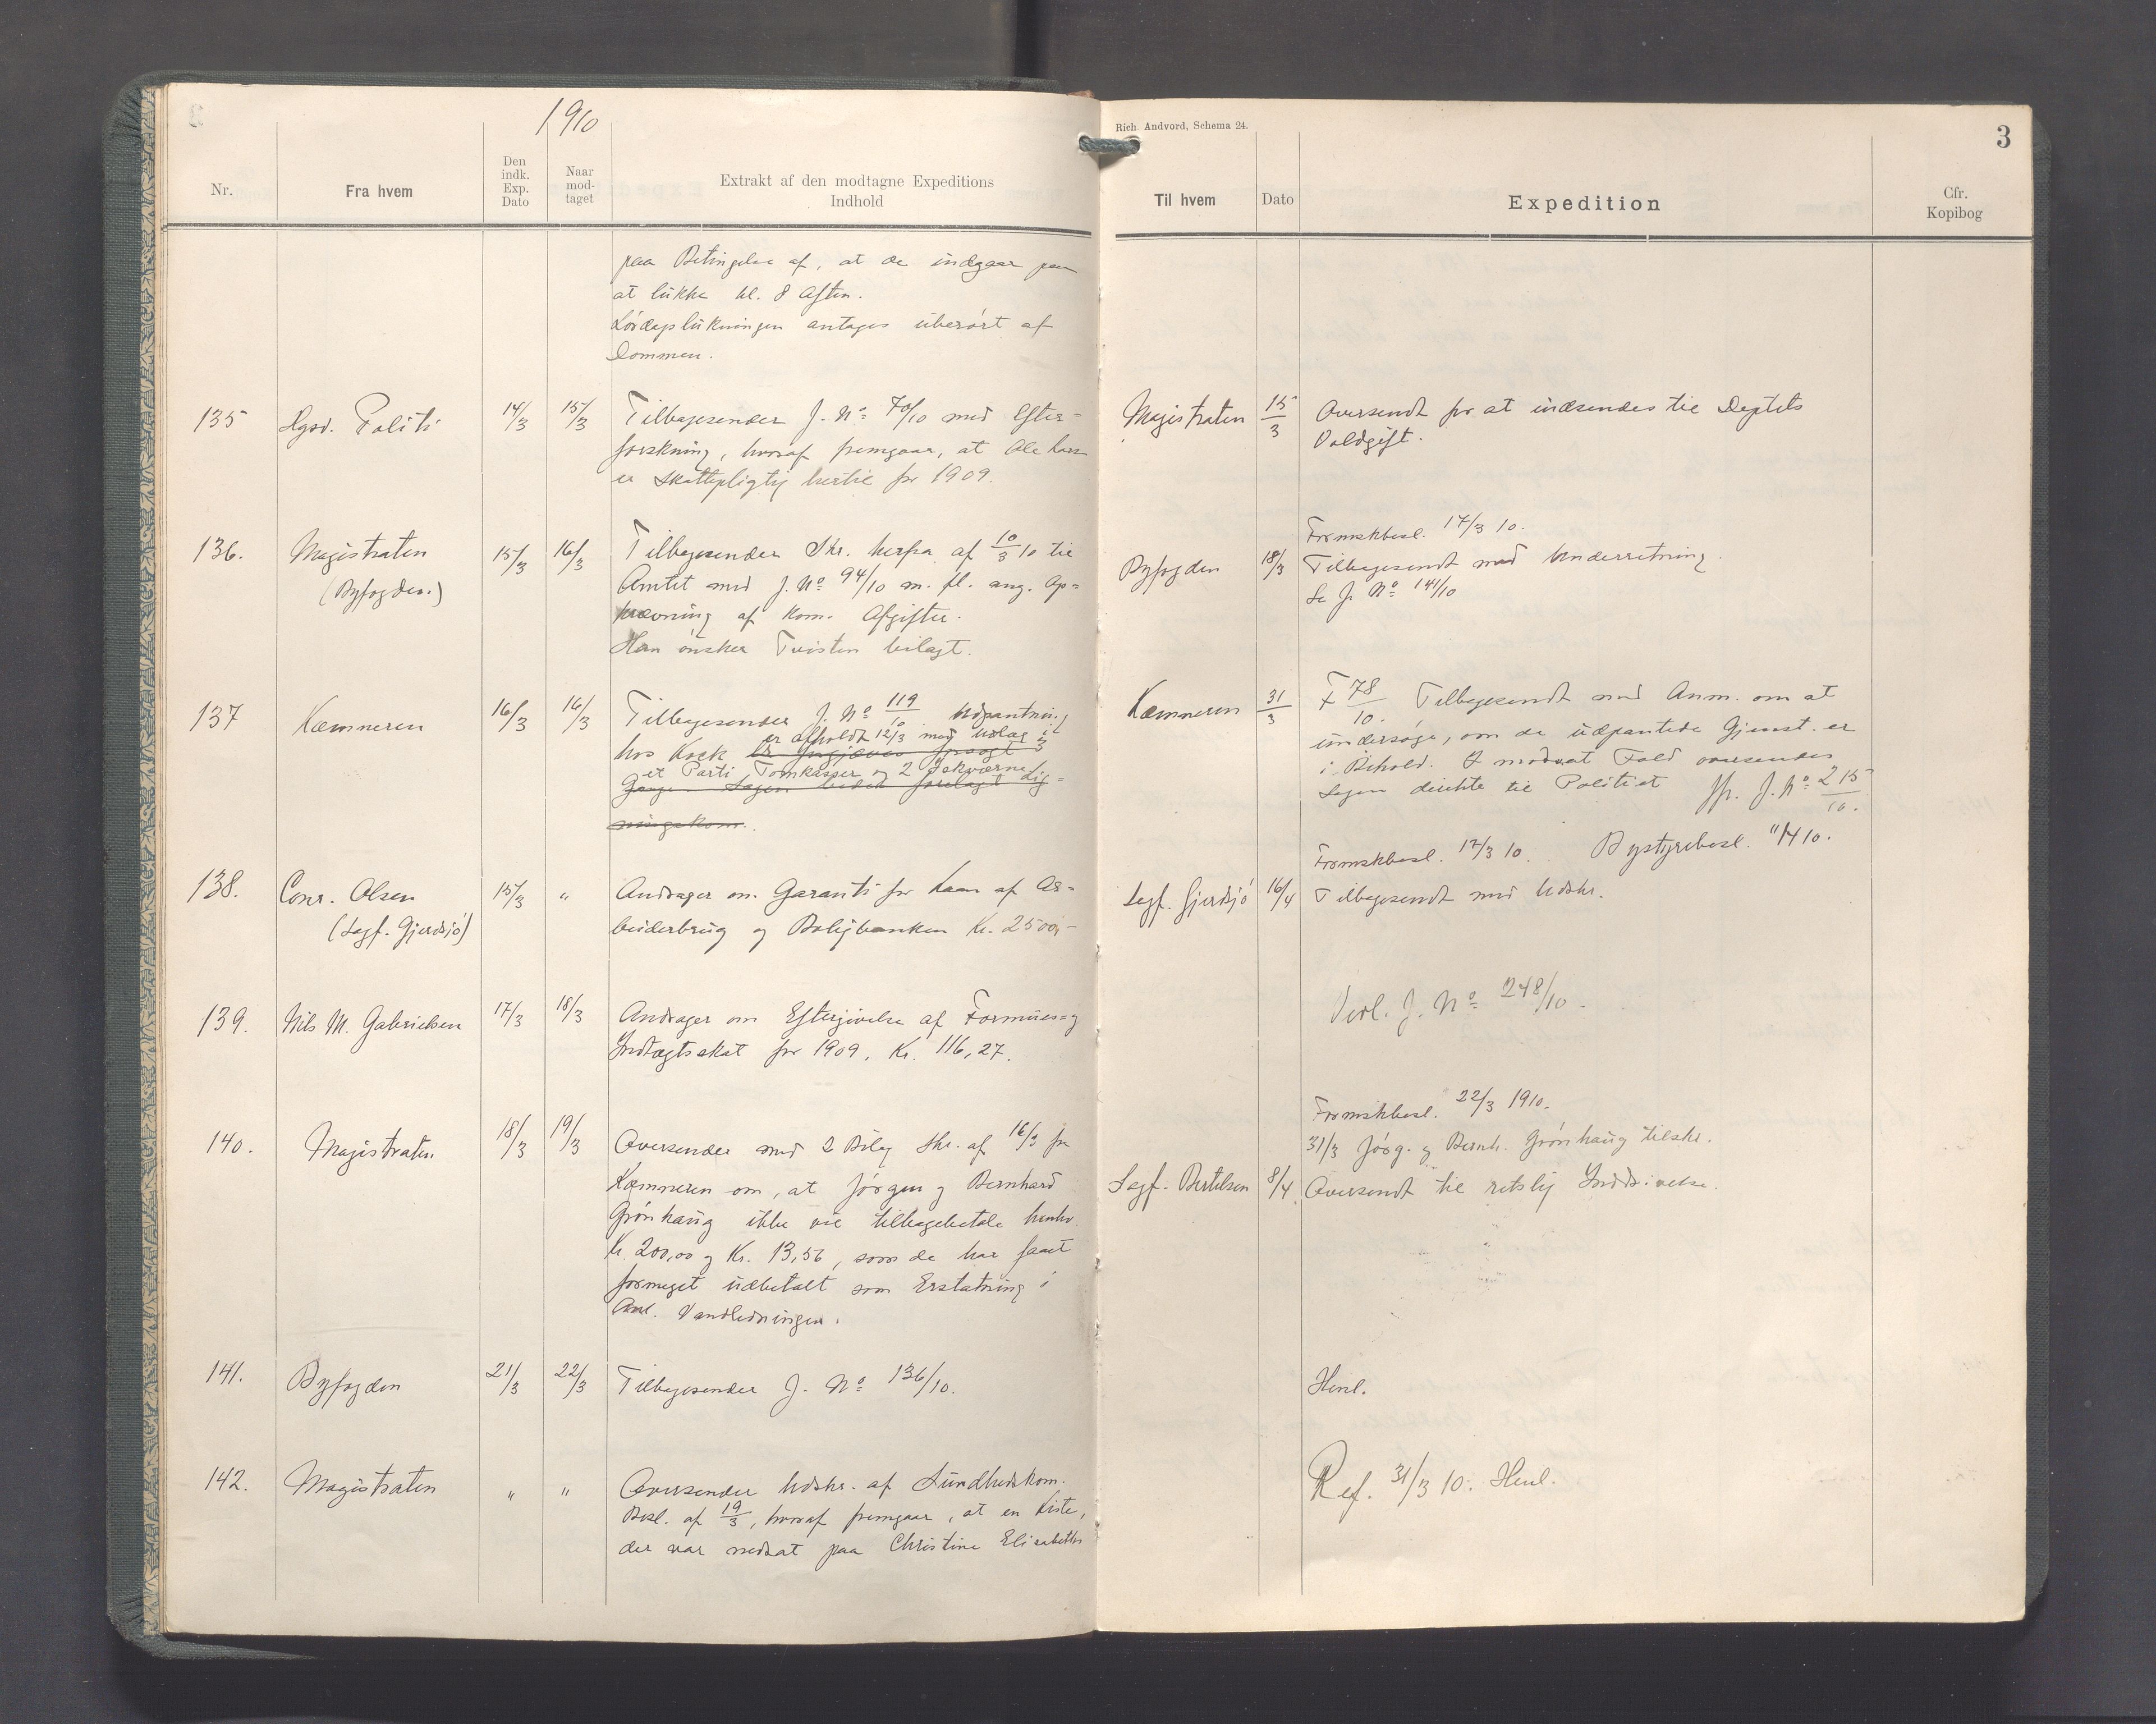 1910
Nr.
Fra hvem
Den indk. Exp. Dato
Naar mod- taget
Extrakt af den modtagne Expeditions Indhold
paa Betingelse af, at de indgaar paa
at lukke kl. 8 Aften.
Lørdagslukningen antages uberørt af
Dommen.
135 Hgsd. Politi 14/3 15/3 Tilbagesender J. No 70/10 med Efter=
forskning, hvoraf fremgaar, at Ole
er skattepligtig hertil for 1909.
136. Magistraten 15/3 16/3 Tilbagesender Skr. herfra af 10/3 10 til
(Byfogden.) Amtet med J. No 94/10 m. fl. ang. Op=
krævning af kom. Afgifter.
Han ønsker Tvisten bilagt.
137 Kæmneren 16/3 16/3 Tilbagesender J. No 119/10. Udpantning
er afholdt 12/3 med Udlæg i
hos Kock er forgjæves forsøgt
et Parti Tomkasser og 2
Gange. Sagen forelagt Lig=
ningskom.
138. Conr. Olsen 15/3 " Andrager om Garanti for Laan af Ar=
(Sagf. Gjerdsjø) beiderbrug og Boligbanken Kr. 2500,-
139. Nils M. Gabrielsen 17/3 18/3 Andrager om Eftergivelse af Formues= og
Indtægtsskat for 1909, Kr. 116,27.
140. Magistraten 18/3 19/3 Oversender med 2 Bilag Skr. af 16/3 fra
Kæmneren om, at Jørgen og Bernhard
Grønhaug ikke vil tilbagebetale henhv.
Kr. 200,00 og Kr. 13,56, som de har faaet
formeget udbetalt som Erstatning i
Anl. Vandledningen.
141. Byfogden 21/3 22/3 Tilbagesender J. No 136/10.
142. Magistraten " " Oversender Udskr. af Sundhedskom.
Besl. af 19/3, hvoraf fremgaar, at en Kiste,
der var nedsat paa Christine Elisabeths
Rich. Andvord, Schema 24.
3
Til hvem
Dato
Expedition
Cfr. Kopibog
Magistraten 15/3 Oversendt for at indsendes til Deptets
Voldgift.
Formskbesl. 17/3 10.
Byfogden 18/3 Tilbagesendt med Underretning.
Se J. No 141/10
Kæmneren 31/3 F 78/10. Tilbagesendt med Anm. om at
undersøge, om de udpantede Gjenst. er
i Behold. I modsat Fald oversendes
Sagen direkte til Politiet Jfr. J. No 215/10.
Formskbesl. 17/3 10. Bystyrebesl. 11/4 10.
Sagf. Gjerdsjø 16/4 Tilbagesendt med Udskr.
Vedl. J. No 248/10.
Formskbesl. 22/3 1910.
31/3 Jørg. og Bernh. Grønhaug tilskr.
Sagf. Bertelsen 8/4 Oversendt til retslig Inddrivelse.
Henl.
Ref. 31/3 10. Henl.